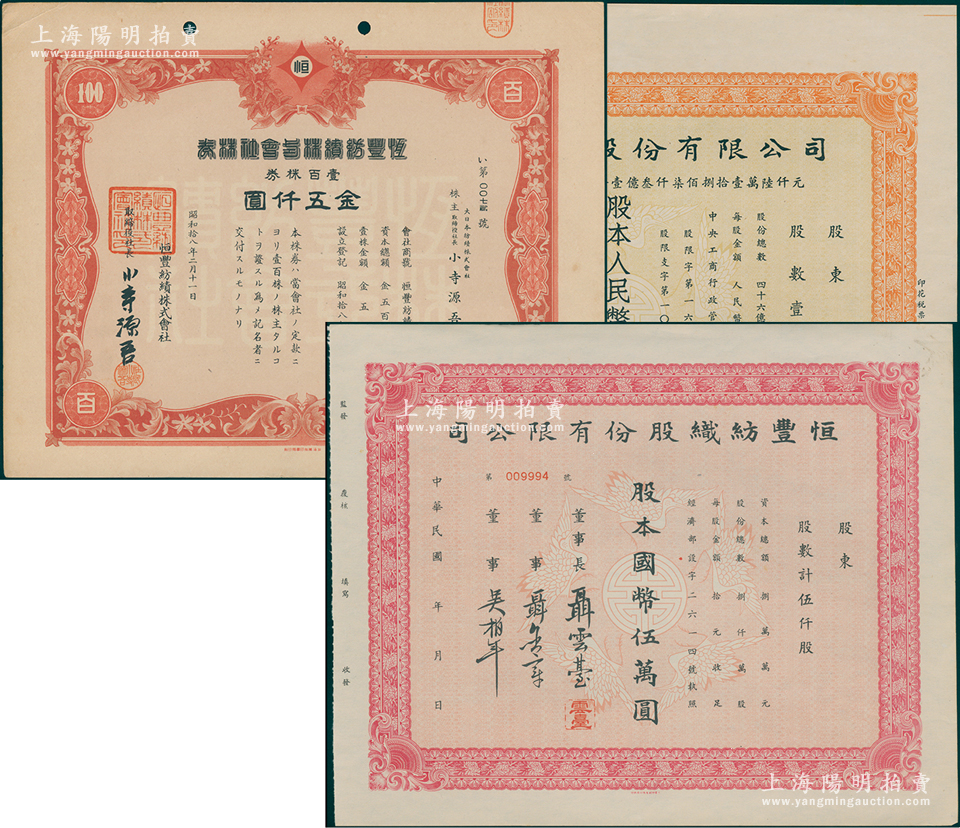 上海陽明拍賣
www.yangmingauction.com
恒
100
百
恆豐紡績株式會社株券
壹百株券
金五仟圓
い第00七貳號
株主
大日本紡績株式會社
取締役社長
小寺源吾
會社商號 恒豐紡績
資本總額 金五百
壹株金額 金五
設立登記 昭和拾八
本株券ハ當會社ノ定款ニ
ヨリ壹百株ノ株主タルコ
トヲ證スル爲メ記名者ニ
交付スルモノナリ
昭和拾八年二月十一日
恒豐紡績株式會社
取締役社長 小寺源吾
百
股份有限公司
壹億叁仟柒佰捌拾壹萬陸仟元
股東
股數壹
股份總數 四十六億
每股金額 人民幣
中央工商行政管
股限字第一六
股限支字第一〇
股本人民幣
印花稅票
上海陽明拍賣
www.yangmingauction.com
恒豐紡織股份有限公司
股東
股數計伍仟股
資本總額 捌萬萬元
股份總數 捌仟萬股
每股金額 拾元收足
經濟部設字二六一四號執照
股本國幣伍萬圓
第 009994 號
董事長 聶雲臺
雲臺
董事
董事 吳柏年
中華民國 年 月 日
監發
覆核
填寫
收發
上海陽明拍賣
www.yangmingauction.com